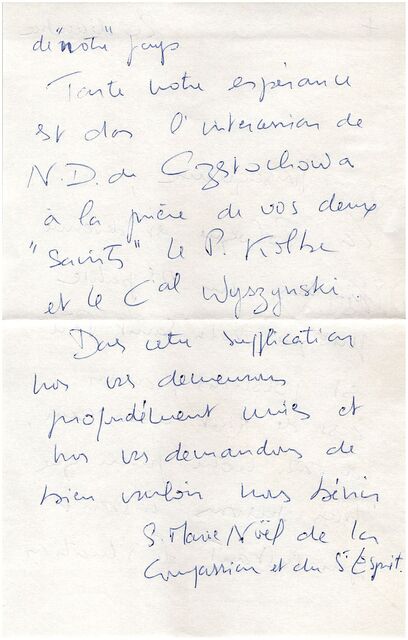 de "notre" pays
Toute notre espérance
est dans l'intercession de
N.D. de Częstochowa
à la prière de vos deux
"Saints" le P. Kolbe
et le Cal Wyszynski.
Dans cette supplication
nos vs demeurons
profondément unies et
nos vs demandons de
bien vouloir nous bénir
S. Marie Noël de la
Compassion et du St Esprit.